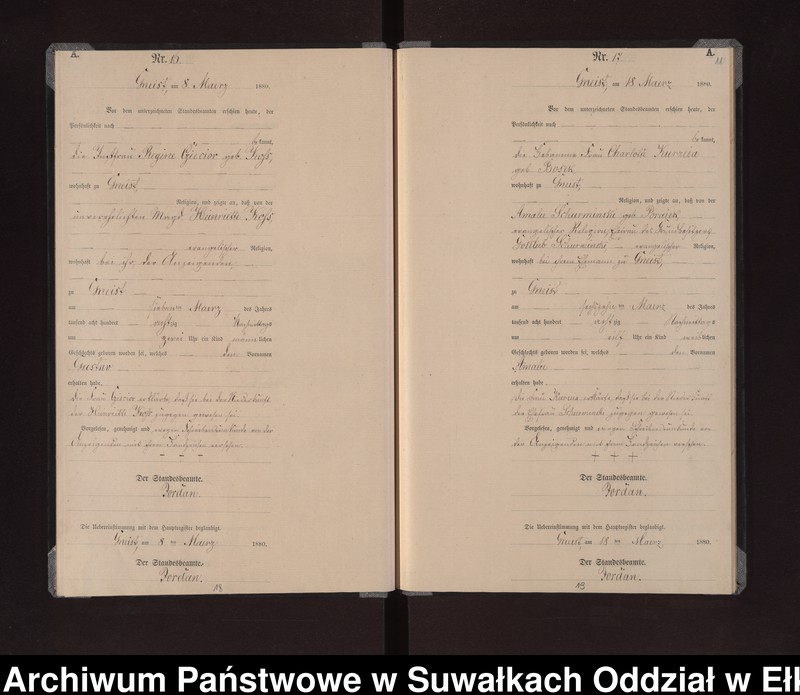 A.
Nr. 15.
Gneist, am 8 Maerz 1880.
Vor dem unterzeichneten Standesbeamten erschien heute, der
Persönlichkeit nach
kannt,
die Regine geb.
wohnhaft zu Gneist,
Religion, und zeigte an, daß von der
unverehelichten Magd Henriette
evangelischer Religion,
wohnhaft bei ihr, der Anzeigenden,
zu Gneist
am Maerz des Jahres
tausend acht hundert achtzig Nachmittags
um zwei Uhr ein Kind männlichen
Geschlechts geboren worden sei, welches den Vornamen
Gustav
erhalten habe.
Die Frau erklärte, daß sie bei der Niederkunft
der Henriette zugegen gewesen sei.
Vorgelesen, genehmigt und wegen Schreibensunkunde von der
Anzeigenden mit ihrem Handzeichen versehen.
- - -
Der Standesbeamte.
Jordan.
Die Uebereinstimmung mit dem Hauptregister beglaubigt.
Gneist, am 8 ten Maerz 1880.
Der Standesbeamte.
Jordan.
18
A.
Nr. 17.
Gneist, am 18 Maerz 1880.
Vor dem unterzeichneten Standesbeamten erschien heute, der
Persönlichkeit nach
kannt,
die Hebamme Frau Charlotte
geb.
wohnhaft zu Gneist,
Religion, und zeigte an, daß von der
Amalie geb.
evangelischer Religion, Ehefrau des
Gottlieb evangelischer Religion,
wohnhaft bei ihrem Ehemann zu Gneist,
zu Gneist
am Maerz des Jahres
tausend acht hundert achtzig Nachmittags
um elf Uhr ein Kind weiblichen
Geschlechts geboren worden sei, welches den Vornamen
Amalie
erhalten habe.
Die Frau erklärte, daß sie bei der Niederkunft
der Ehefrau zugegen gewesen sei.
Vorgelesen, genehmigt und wegen Schreibensunkunde von
der Anzeigenden mit ihrem Handzeichen versehen.
+ + +
Der Standesbeamte.
Jordan.
Die Uebereinstimmung mit dem Hauptregister beglaubigt.
Gneist, am 18 ten Maerz 1880.
Der Standesbeamte.
Jordan.
19
Archiwum Państwowe w Suwałkach Oddział w Eł